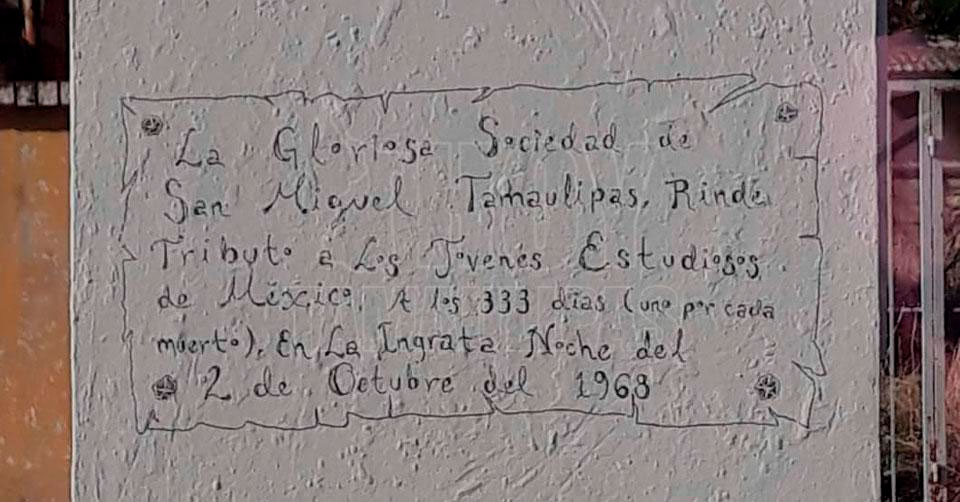 La Gloriosa Sociedad de
San Miguel Tamaulipas, Rinde
Tributo a Los Jovenes Estudiosos
de México, A los 333 dias (uno por cada
muerto), En La Ingrata Noche del
2 de Octubre del 1968